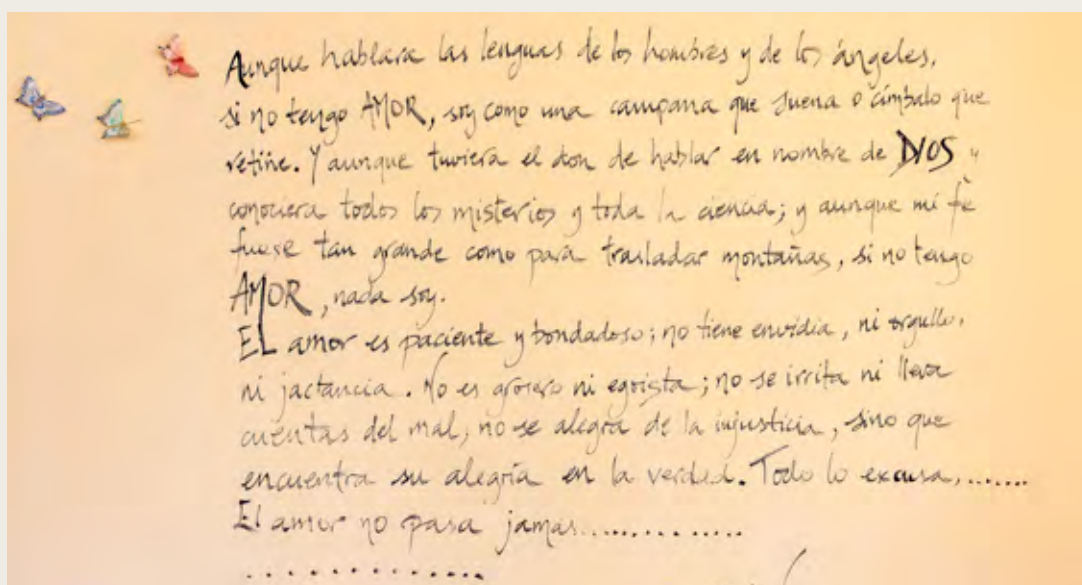 Aunque hablara las lenguas de los hombres y de los ángeles,
si no tengo AMOR, soy como una campana que suena o címbalo que
retiñe. Y aunque tuviera el don de hablar en nombre de DIOS y
conociera todos los misterios y toda la ciencia; y aunque mi fe
fuese tan grande como para trasladar montañas, si no tengo
AMOR, nada soy.
EL amor es paciente y bondadoso; no tiene envidia, ni orgullo,
ni jactancia. No es grosero ni egoista; no se irrita ni lleva
cuentas del mal; no se alegra de la injusticia, sino que
encuentra su alegría en la verdad. Todo lo excusa,.......
El amor no pasa jamas..............
.............